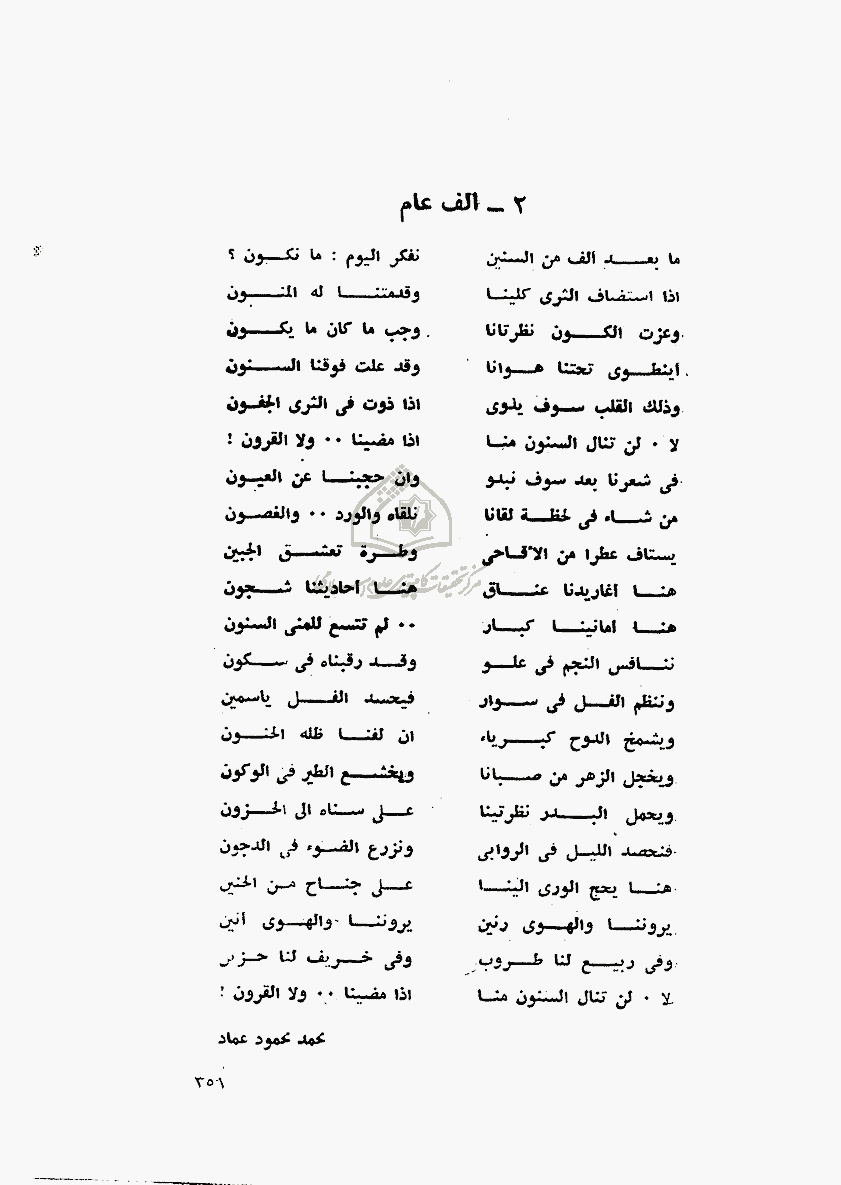 ٢ ــ الف عام
ما بعد ألف من السنين نفكر اليوم : ما نكون ؟
اذا استضاف الثرى كلينا وقدمتنا له المنون
وعزت الكون نظرتانا وجب ما كان ما يكون
أينطوى تحتنا هوانا وقد علت فوقنا السنون
وذلك القلب سوف يذوى اذا ذوت فى الثرى الجفون
لا ٠ لن تنال السنون منا اذا مضينا ٠٠ ولا القرون !
فى شعرنا بعد سوف نبدو وان حجبنا عن العيون
من شاء فى لحظة لقانا نلقاه والورد ٠٠ والغصون
يستاف عطرا من الأقاحى وطرة تعشق الجبين
هنا أغاريدنا عناق هنا أحاديثنا شجون
هنا أمانينا كبار ٠٠ لم تتسع للمنى السنون
ننافس النجم فى علو وقد رقبناه فى سكون
وننظم الفل فى سوار فيحسد الفل ياسمين
ويشمخ الدوح كبرياء ان لفنا ظله الحنون
ويخجل الزهر من صبانا ويخشع الطير فى الوكون
ويحمل البدر نظرتينا على سناه الى الحزون
فنحصد الليل فى الروابى ونزرع الضوء فى الدجون
هنا يحج الورى الينا على جناح من الحنين
يروننا والهوى رنين يروننا والهوى أنين
وفى ربيع لنا طروب وفى خريف لنا حزين
لا ٠ لن تنال السنون منا اذا مضينا ٠٠ ولا القرون !
محمد محمود عماد
٣٥١